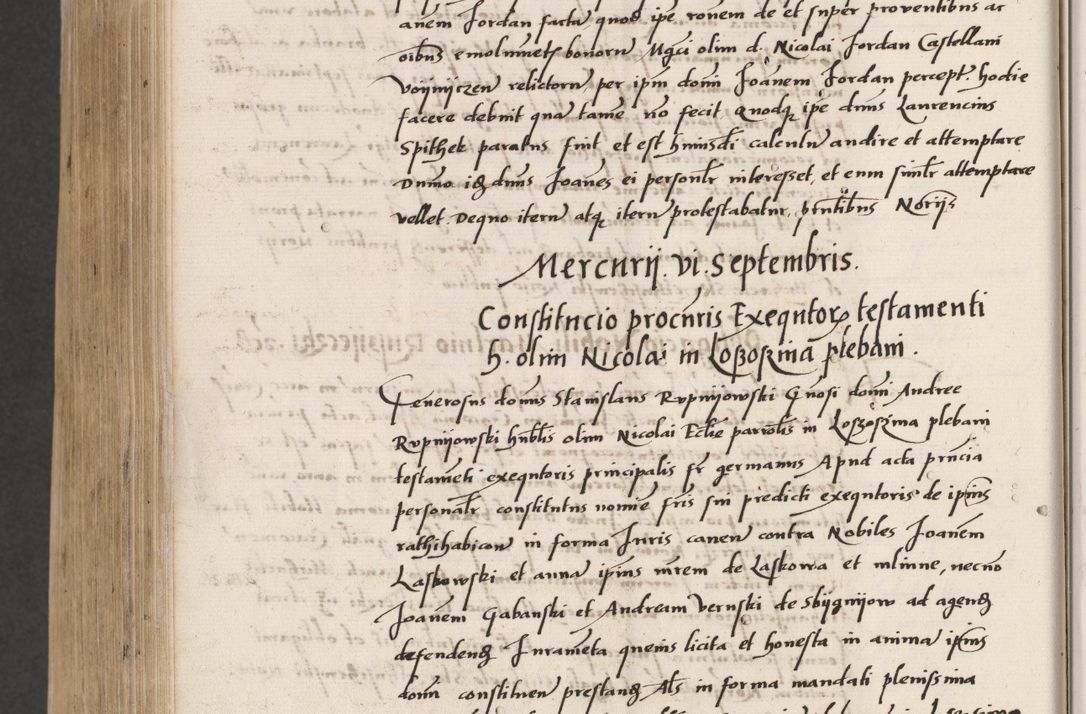 anem Jordan factu quod ipe ronem de et super proventibus ac
oibus emolumet bonoru Mgci olim d. Nicolai Jordan Castellani
Voynyczen relictoru per ipm domi Joanem Jordan percept. hodie
facere debuit qua tame no fecit Quodq ipe dnus Laurencius
Spithek paratus fuit et est huiusdi calculu audire et attemptare
Dumo id dnus Joanes ei personlr interesset, et eum similr attemptare
vellet Deqno iteru atq iteru protestabatur, pntibus Norijs
Mercurij. vi. Septembris.
Constitucio procuris Exequutor testamenti
h. olim Nicolai in Loszoszina plebani.
Generosus domus Stanislaus Rupnijowski Gnosi domi Andree
Rupnijowski hnblis olim Nicolai Ecclie parrolis in Loszoszina plebani
testameti exequtoris principalis fr germanus Apud acta pncia
personalr constitutus nomie fris sui predicti exequtoris de ipius
rathihabicon in forma Juris canen contra Nobiles Joanem
Laskowski et anna ipius mrem de Laskowa et mlinne, necno
Joanem Gabanski et Andream Vernski de Sbijgnijow ad agend
defendend Jurameta queuis licita et honesta in anima ipius
domi constituen prestand Als in forma mandati plenissima